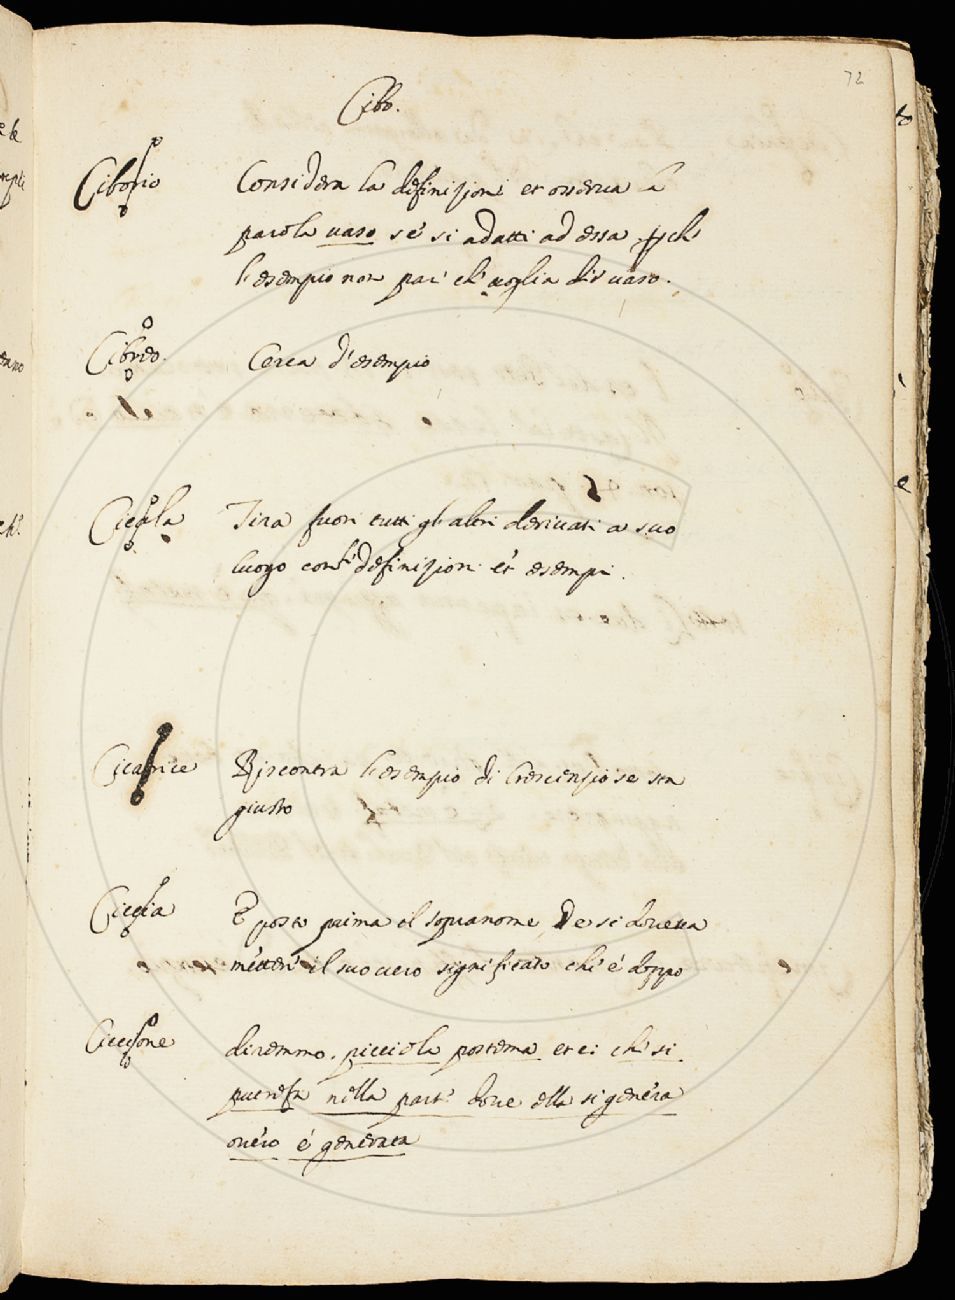 72
Cibo.
Ciborio Considera la definizioni et osserva la
parola vaso se si adatti ad essa pche
l'esempio non par che voglia dir vaso.
Cibreo. Cerca d'esempio
Cicala Tira fuori tutti gli altri derivati a suo
luogo con definizioni et esempi.
Cicatrice Riscontra l'esempio di Crescenzio se sta
giusto
Ciccia È posto prima il sopranome, e si doveva
metter il suo vero significato che è doppo
Ciccione diremmo. picciola postema et ci che si
putrefa nella parte dove ella si genera
overo è generata